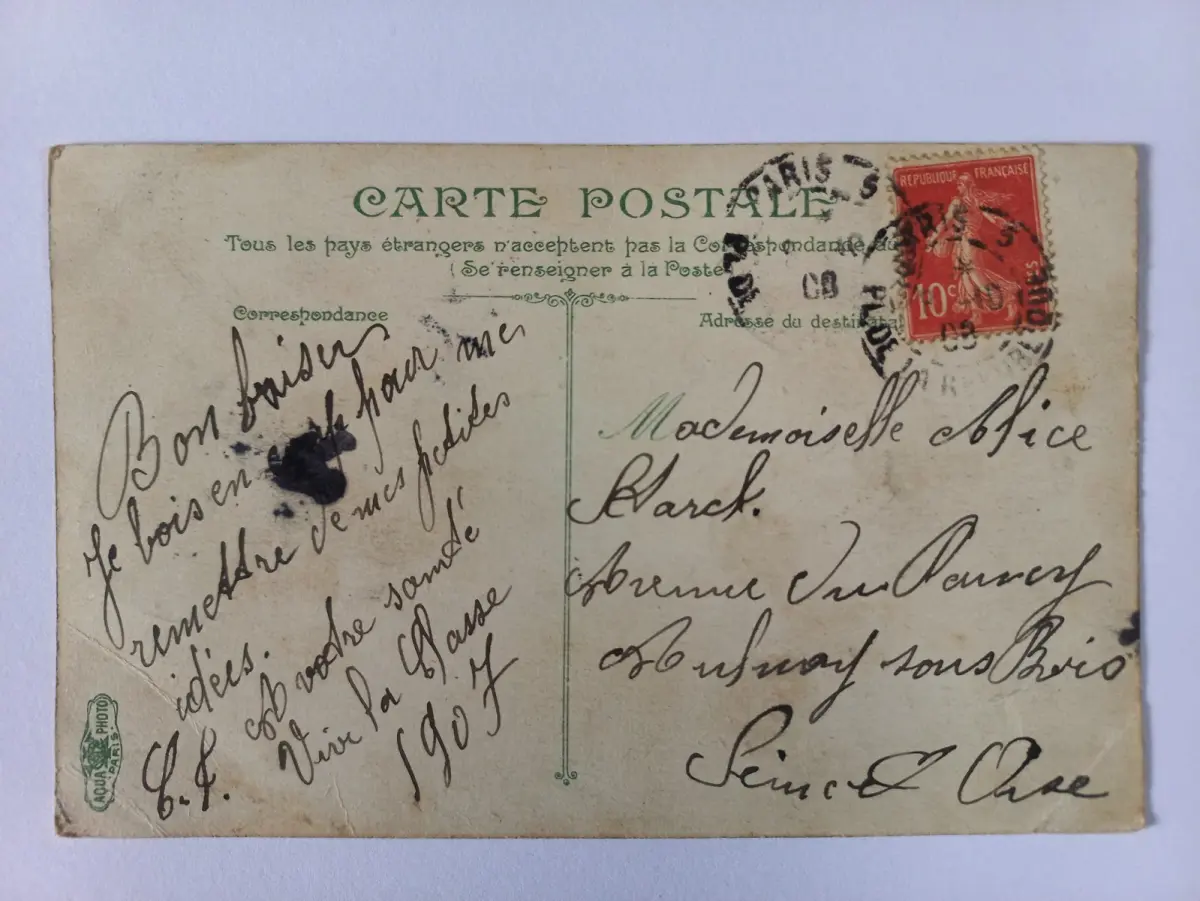 CARTE POSTALE
Tous les pays étrangers n'acceptent pas la Correspondance au
(Se renseigner à la Poste
Correspondance
Adresse du destinata
Bon baiser
Je bois en pour me
remettre de mes petites
idées.
A votre santé
Vive la Classe
1907
Mademoiselle Alice
Avenue du
Aulnay sous Bois
Seine & Oise
REPUBLIQUE FRANÇAISE
10c
PARIS
08
PARIS
PL. DE
10
08
AQUA PHOTO
PARIS